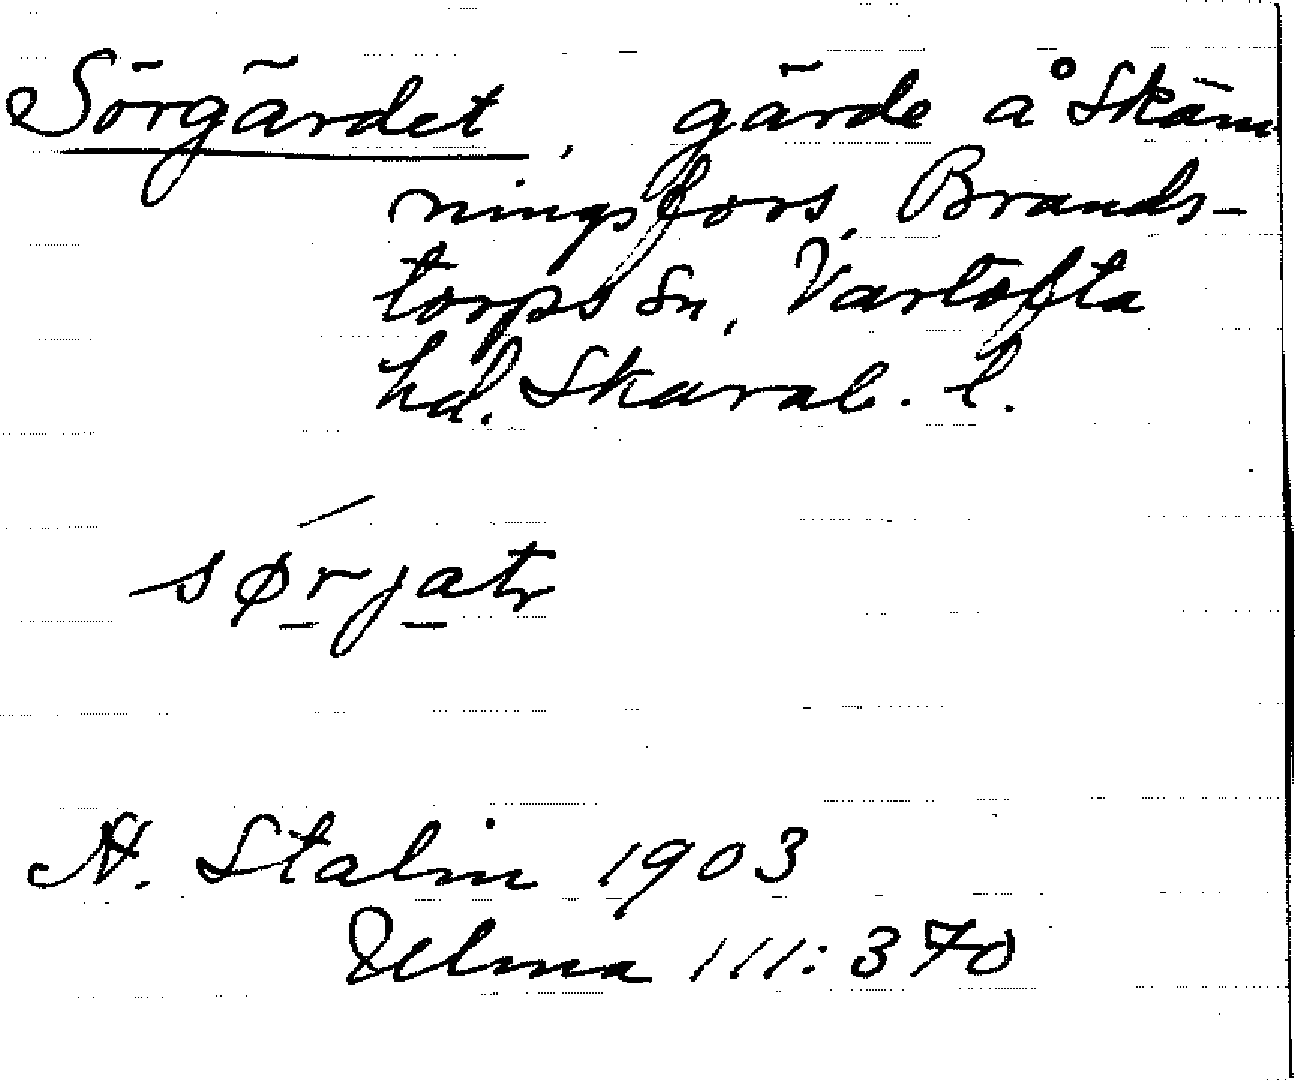 Sörgärdet, gärde å Skäm
ningsfors, Brands-
torps sn, Vartofta
hd. Skarab. l.
sørjatr
H. Stalin 1903
Ulma 111:370